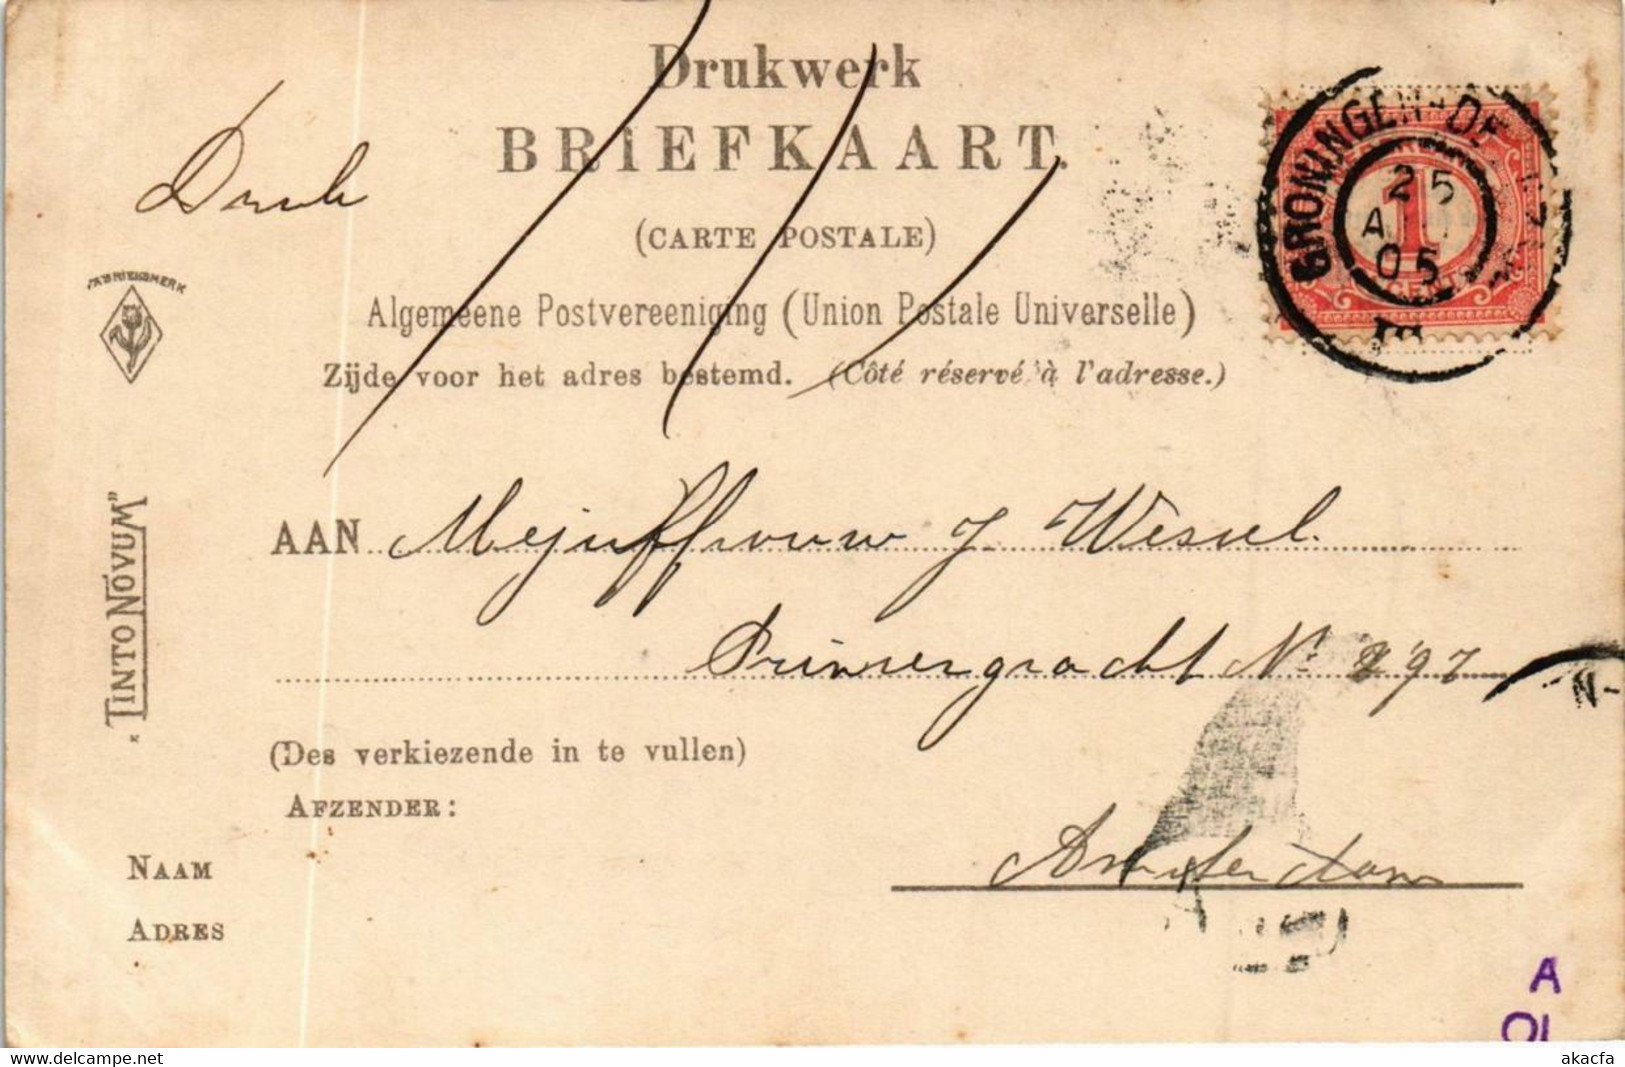 Drukwerk
BRIEFKAART.
(CARTE POSTALE)
Algemeene Postvereeniging (Union Postale Universelle)
Zijde voor het adres bestemd. (Côté réservé à l'adresse.)
Druk
FABRIEKSMERK
„TINTO NOVUM"
GRONINGEN-DE
25
A
05
1
CENT
AAN Mejuffrouw J. Wessel.
Prinsengracht No 297
N-
(Des verkiezende in te vullen)
AFZENDER:
NAAM
ADRES
Amsterdam
A
akacfa